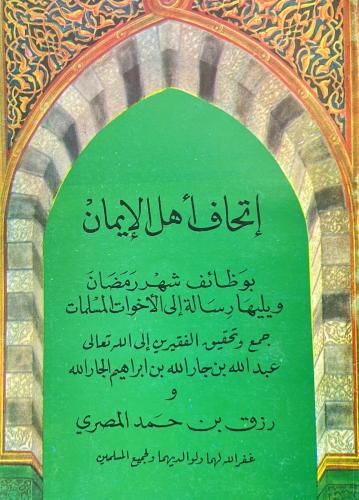 إتحاف أهل الإيمان
بوظائف شهر رمضان
ويليها رسالة إلى الأخوات المسلمات
جمع وتحقيق الفقيرين إلى الله تعالى
عبد الله بن جار الله بن ابراهيم الجار الله
و
رزق بن حمد المصري
غفر الله لهما ولوالديهما ولجميع المسلمين